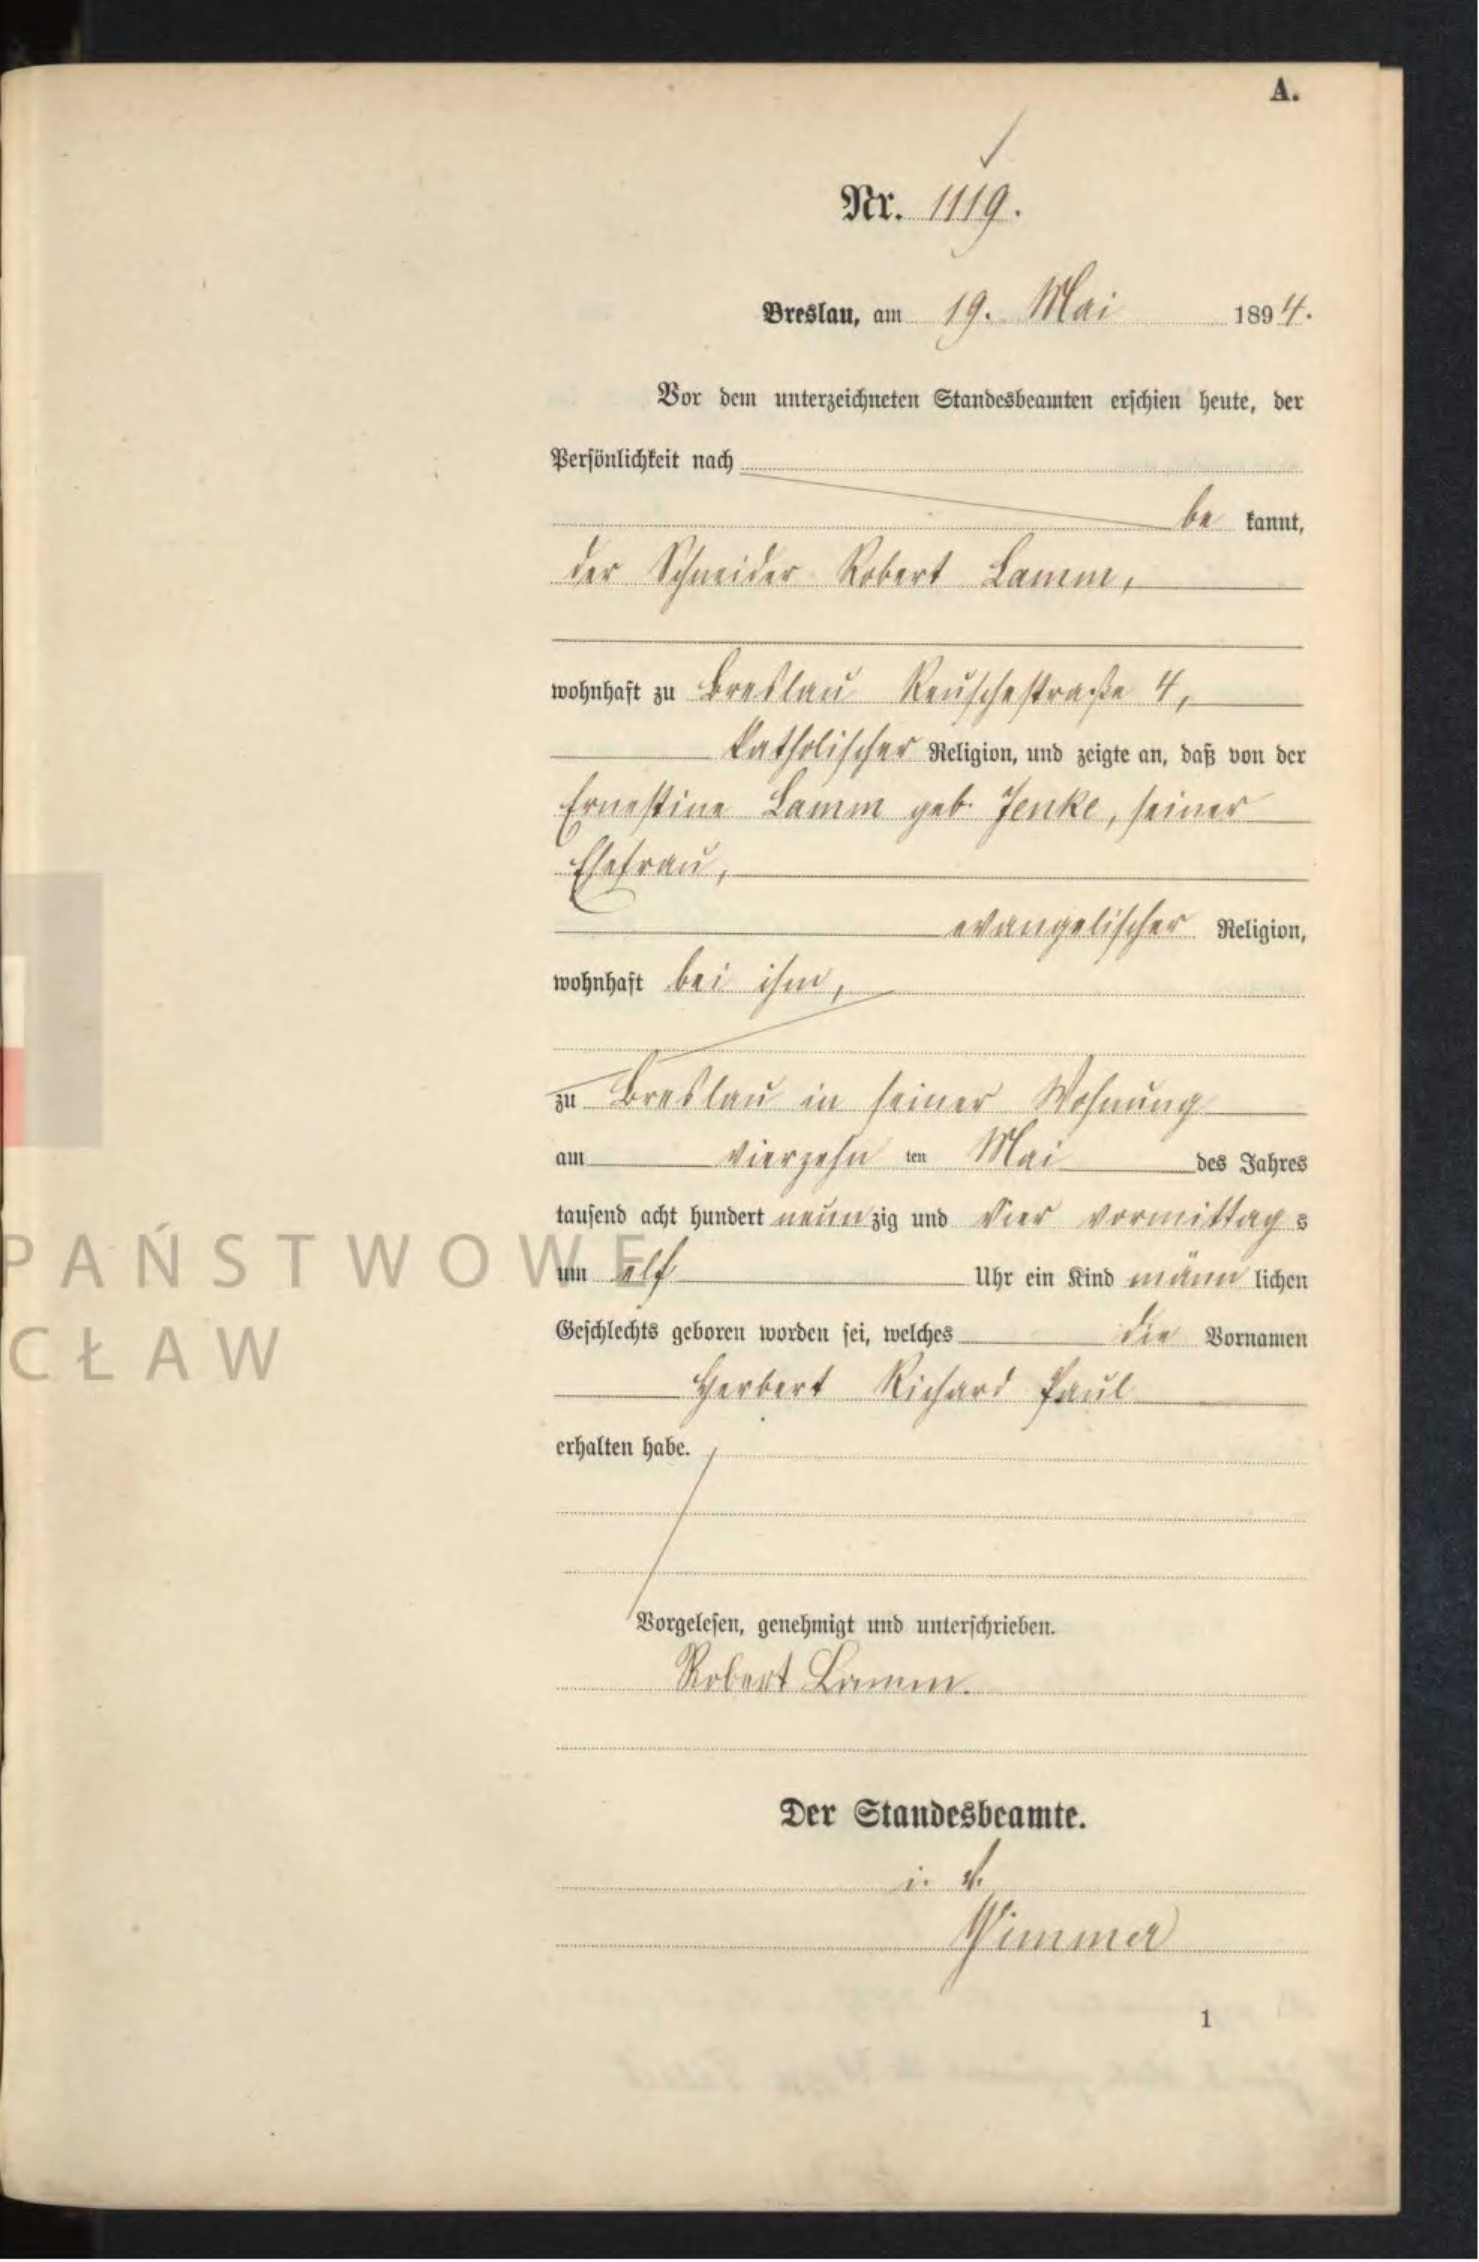 A.
Nr. 1119.
Breslau, am 19. Mai 1894.
Vor dem unterzeichneten Standesbeamten erschien heute, der
Persönlichkeit nach
be kannt,
der Schneider Robert Lamm,
wohnhaft zu Breslau Reuschestraße 4,
katholischer Religion, und zeigte an, daß von der
Ernestine Lamm geb. Jenke, seiner
Ehefrau,
evangelischer Religion,
wohnhaft bei ihm,
zu Breslau in seiner Wohnung
am vierzehn ten Mai des Jahres
tausend acht hundert neun zig und vier vormittag s
um elf Uhr ein Kind männ lichen
Geschlechts geboren worden sei, welches die Vornamen
Herbert Richard Paul
erhalten habe.
Vorgelesen, genehmigt und unterschrieben.
Robert Lamm.
Der Standesbeamte.
i. V.
1
PAŃSTWOWE
CŁAW